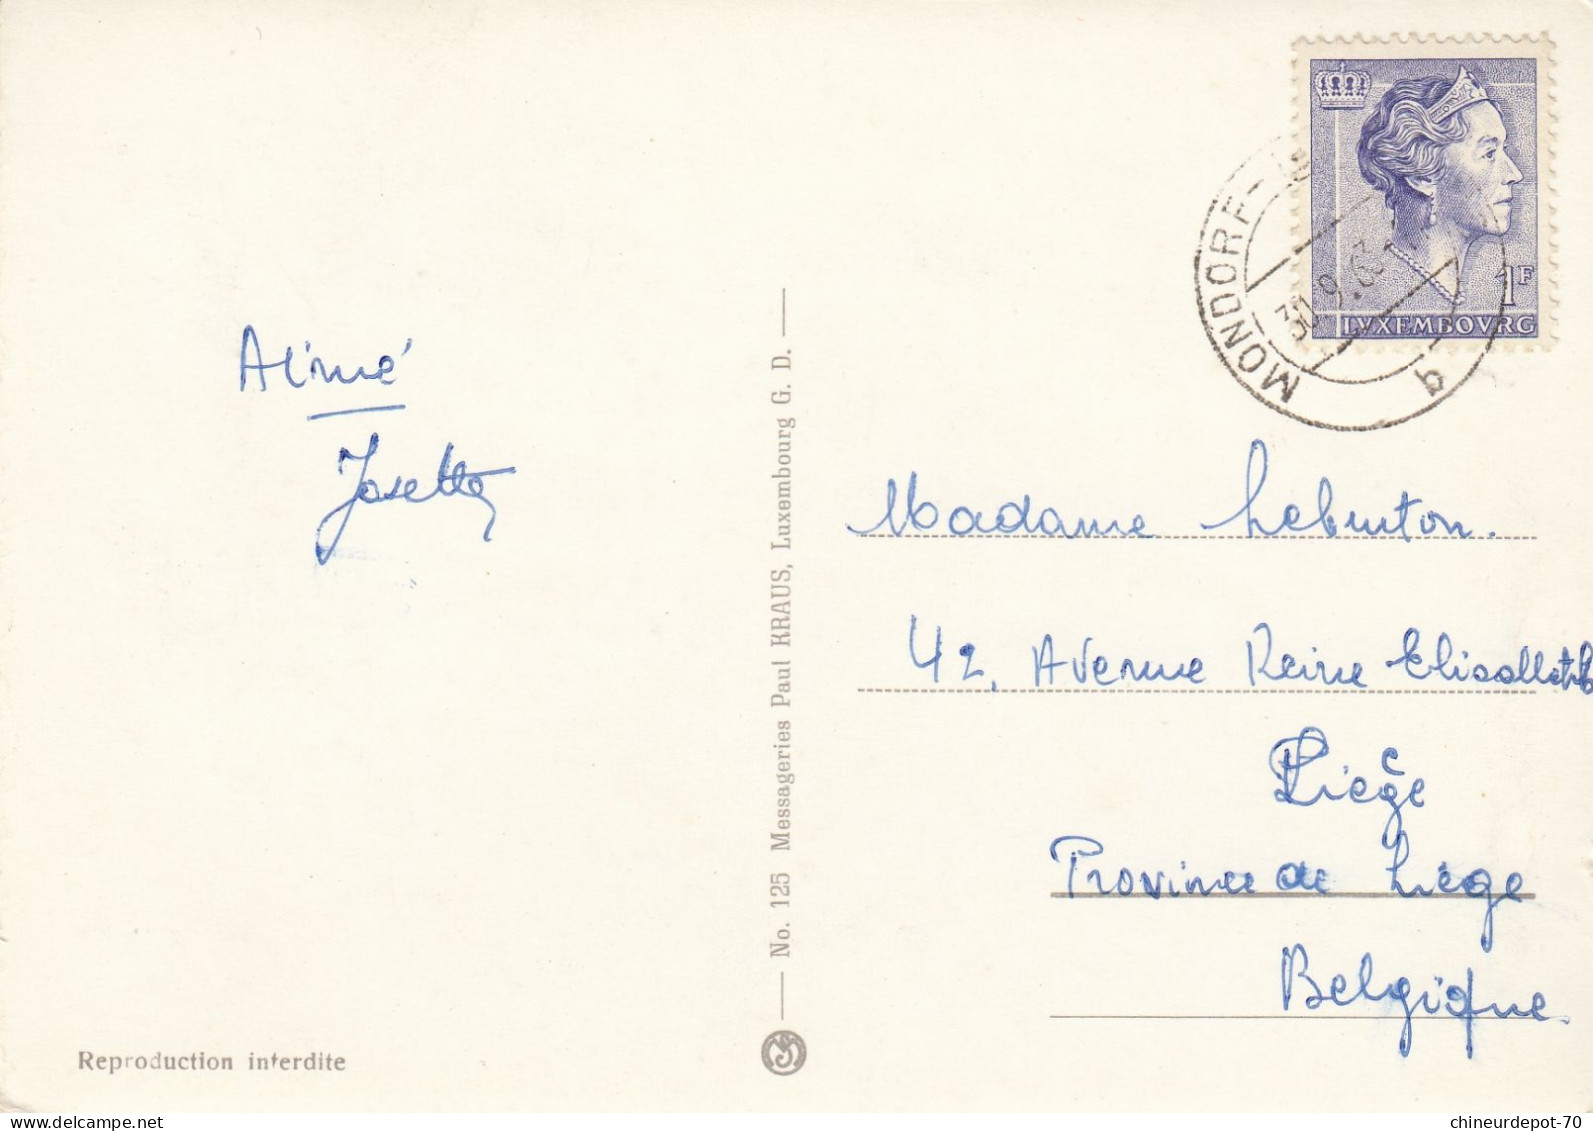 Aimé
Josette
Reproduction interdite
No. 125 Messageries Paul KRAUS, Luxembourg G. D.
1F
LVXEMBOVRG
MONDORF-
30.9.63
b
Madame Lebruton.
42, Avenue Reine Elisabeth
Liège
Province de Liège
Belgique.
delcampe.net
chineurdepot-70